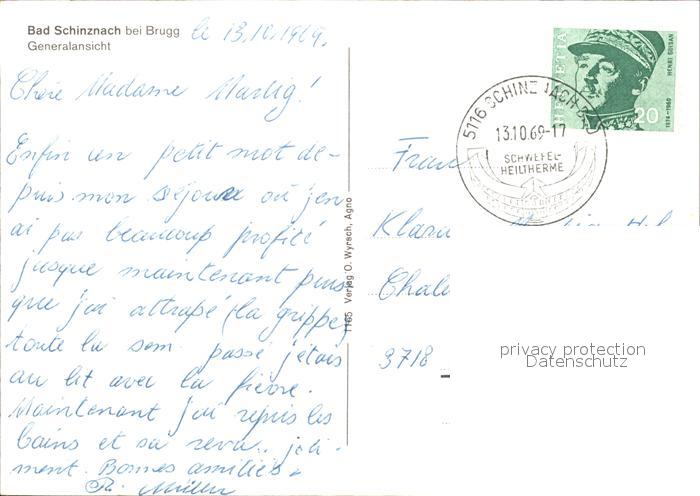 Bad Schinznach bei Brugg
Generalansicht
le 13.10.1969.
Chère Madame Martig!
Enfin un petit mot de-
puis mon séjour où j'en
ai pas beaucoup profité
jusque maintenant puis
que j'ai attrapé (la grippe)
toute la sem. passé j'étais
au lit avec la fièvre.
Maintenant j'ai repris les
bains et sa reva.. joli-
ment. Bonnes amitiés
Müller
1165 Verlag O. Wyrsch, Agno
HELVETIA
HENRI GUISAN
1874-1960
20
5116 SCHINZNACH BAD
13.10.69-17
SCHWEFEL-
HEILTHERME
Frau
Klara
Chale
3718
privacy protection
Datenschutz